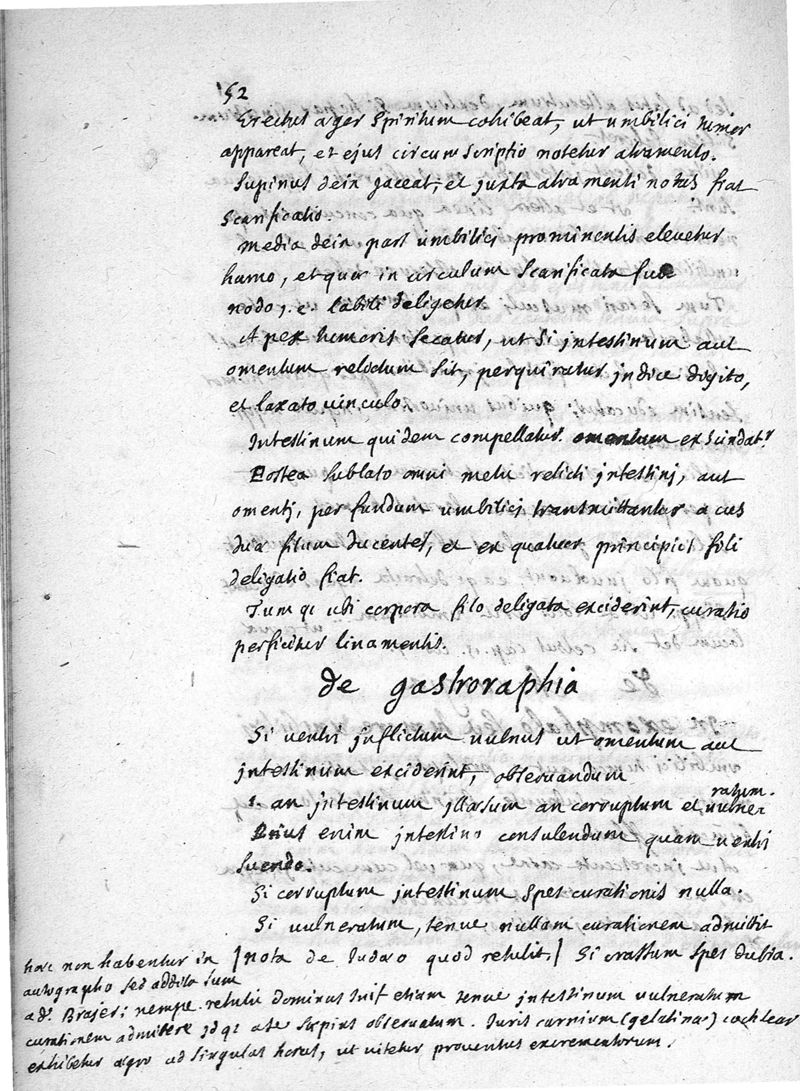 52
Erectus aeger spiritum cohibeat, ut umbilici tumor
appareat, et ejus circumscriptio notetur atramento.
Supinus dein jaceat, et juxta atramenti notas fiat
scarificatio
media dein pars umbilici prominentis elevetur
hamo, et quae in circulum scarificata
nodo, labili deligetur
Apex humoris secatur, ut si intestinum aut
omentum relictum sit, perquiratur indice digito,
et laxato vinculo.
Intestinum quidem compellatur. omentum exscindatr
Postea sublato omni metu relicti intestinj, aut
omentj, per fundum umbilici transmittantur acus
duo filum ducentes, et ex quatuor principiis fili
deligatio fiat.
Tum qz ubi corpora filo deligata exciderint, curatio
perficitur linamentis.
de gastroraphia
Si ventri inflictum vulnus ut omentum aut
jntestinum exciderint, observandum
1. an jntestinum jllaesum an corruptum et vulneratum.
Prius enim intestino consulendum quam ventri
suendo.
Si corruptum intestinum spes curationis nulla.
Si vulneratum, tenue nullam curationem admittit
[nota de Judaeo quod retulit] Si crassum spes dubia.
haec non habentur in
autographo sed addita sunt
a dr. Brajer; nempe retulit dominus etiam tenue intestinum vulneratum
curationem admittere idqz a se saepius observatum. Juris carnium (gelatinae) cochlear
exhibetur aegro ad singulas horas, ut vitetur proventus excrementorum.